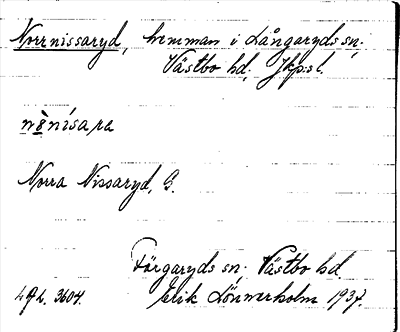 Norrnissaryd, hemman i Långaryds sn.
Västbo hd, Jkp:s l.
nènísara
Norra Nissaryd, G.
Färgaryds sn, Västbo hd.
Lqk. 3604. Erik Lönnerholm 1937.